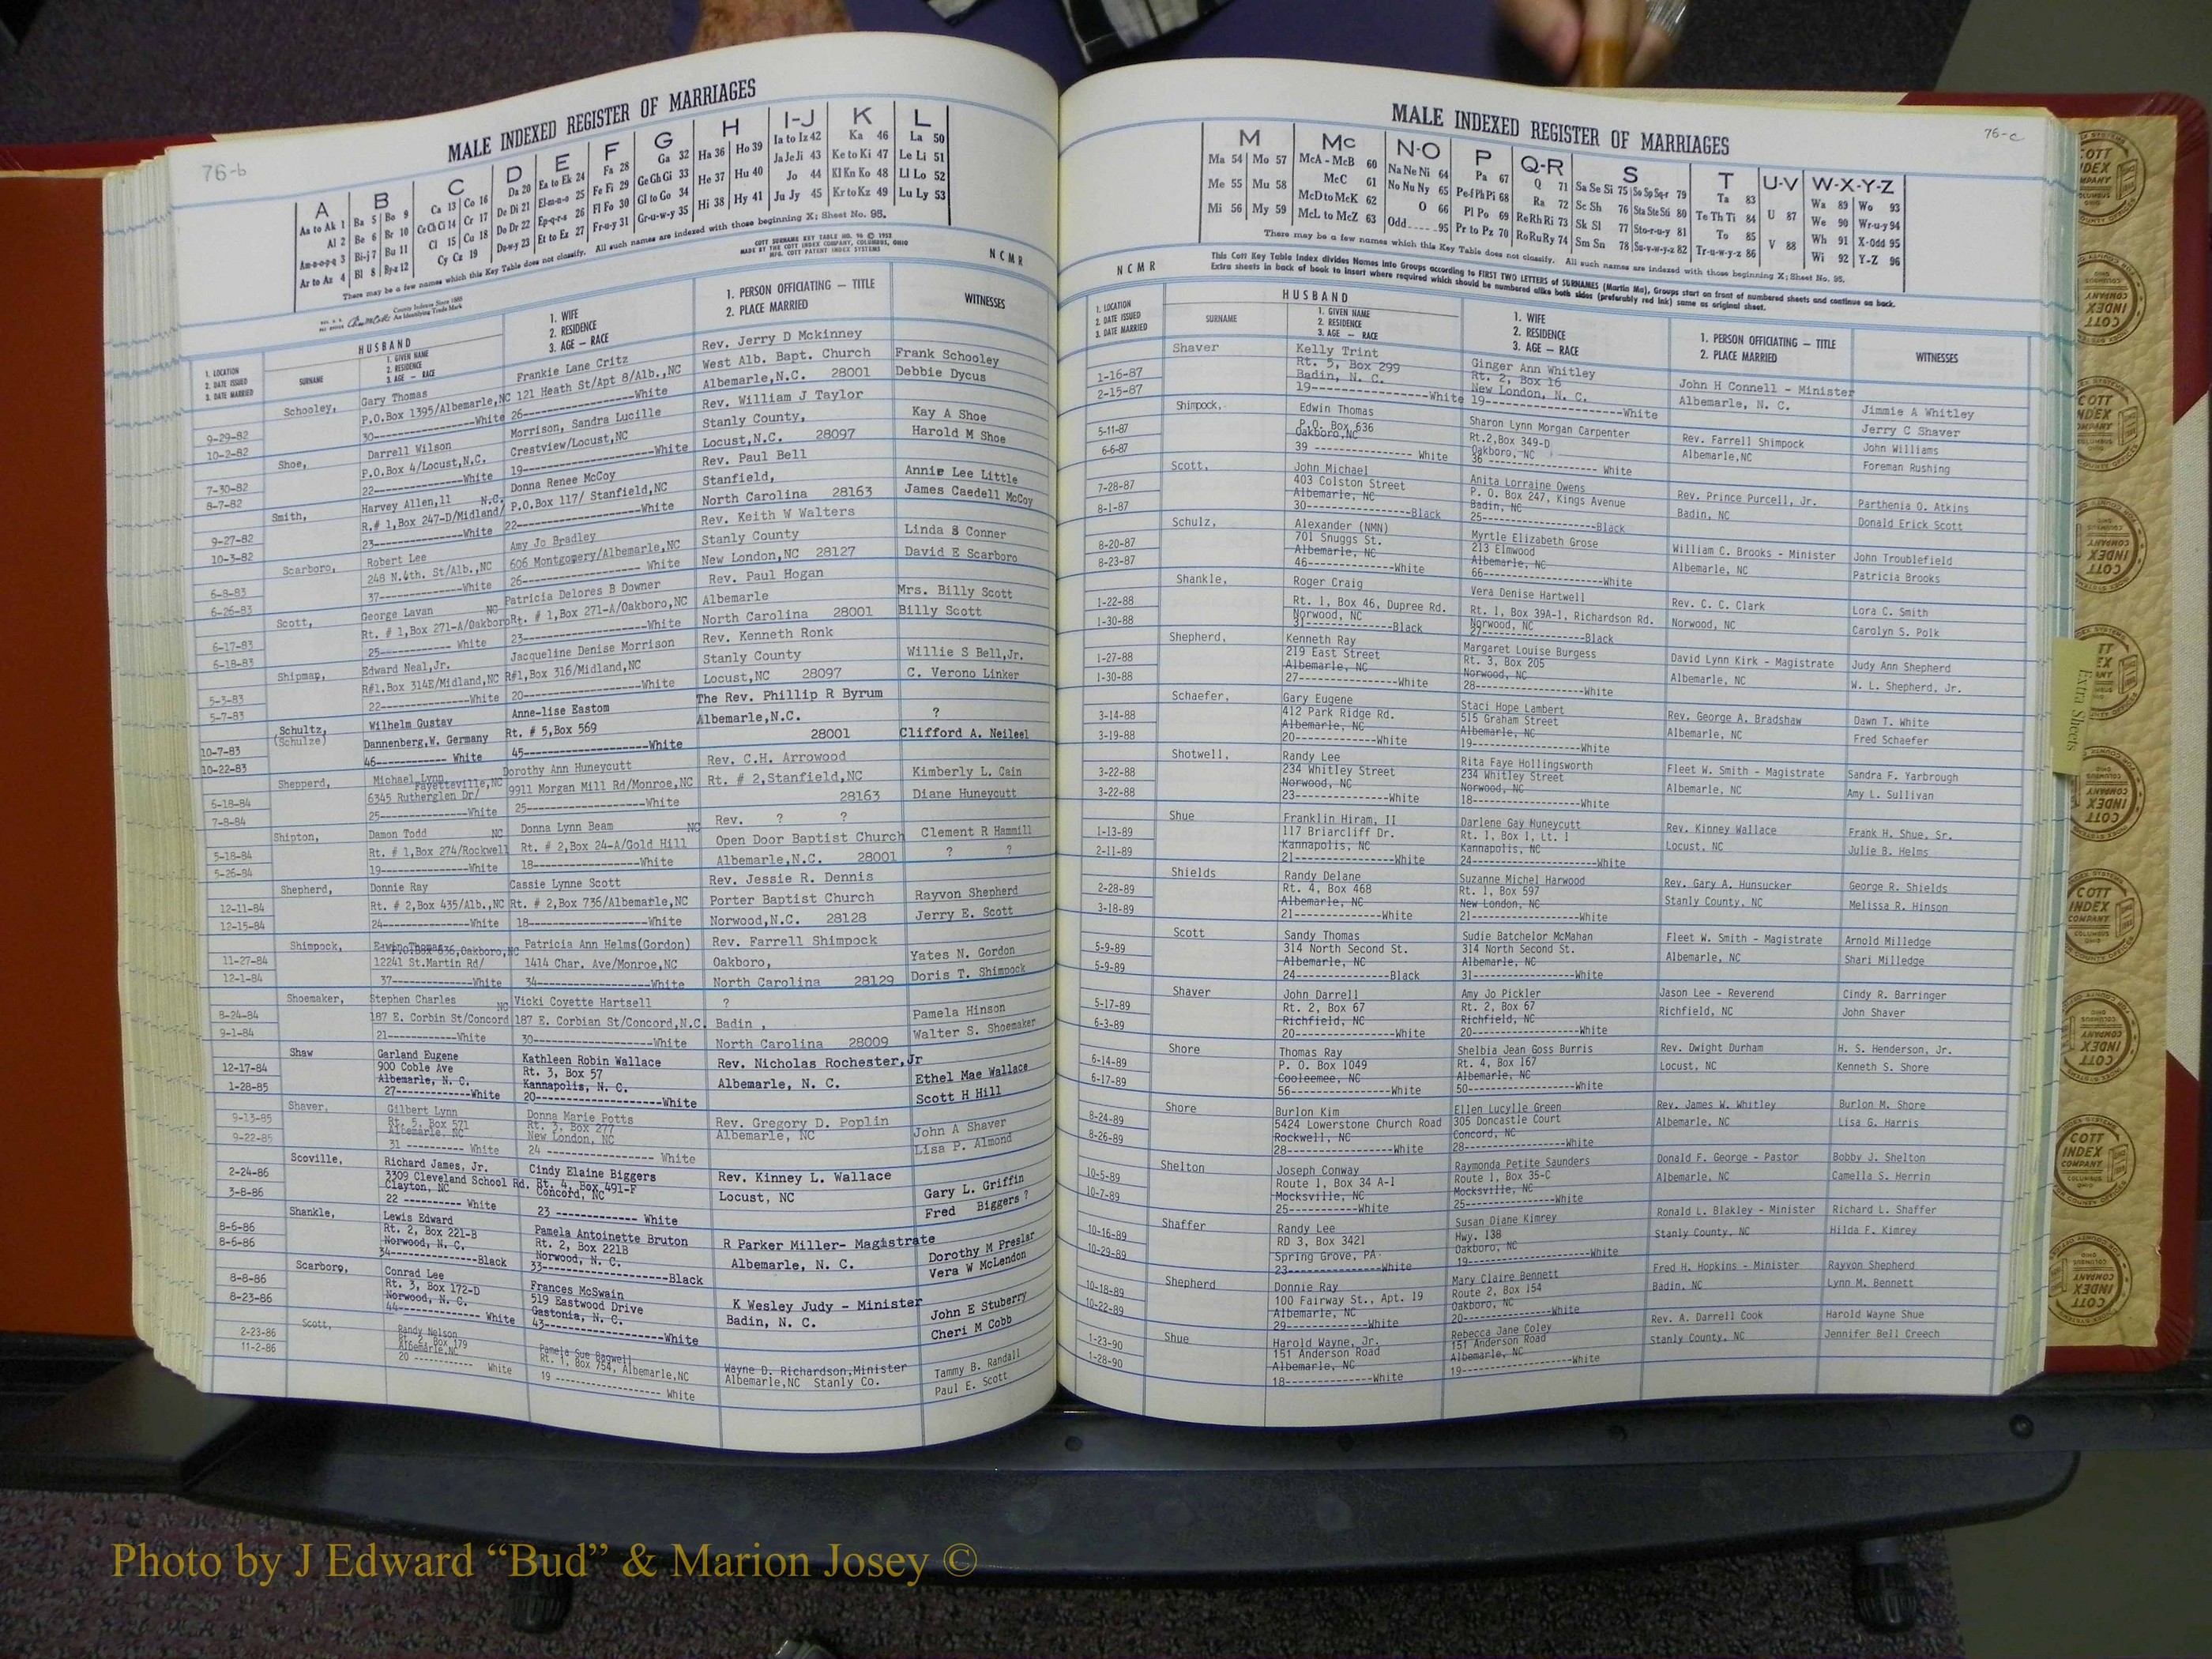 76-b
MALE INDEXED REGISTER OF MARRIAGES
A B C D E F G H I-J K L
Aa to Ak 1 Ba 5 Bo 9 Ca 13 Co 16 Da 20 Ea to Ek 24 Fa 28 Ga 32 Ha 36 Ho 39 Ia to Iz 42 Ka 46 La 50
Al 2 Be 6 Br 10 Ce Ch Ci 14 Cr 17 De Di 21 El-m-n-o 25 Fe Fi 29 Ge Gh Gi 33 He 37 Hu 40 Ja Je Ji 43 Ke to Ki 47 Le Li 51
Am-n-o-p-q 3 Bi-j 7 Bu 11 Cl 15 Cu 18 Do Dr 22 Ep-q-r-s 26 Fl Fo 30 Gl to Go 34 Hi 38 Hy 41 Jo 44 Kl Kn Ko 48 Ll Lo 52
Ar to Az 4 Bl 8 By-z 12 Cy Cz 19 Du-w-y 23 Et to Ez 27 Fr-u-y 31 Gr-u-w-y 35 Ju Jy 45 Kr to Kz 49 Lu Ly 53
There may be a few names which this Key Table does not classify. All such names are indexed with those beginning X; Sheet No. 95.
COTT SURNAME KEY TABLE NO. 96 © 1952
MADE BY THE COTT INDEX COMPANY, COLUMBUS, OHIO
MFG. COTT PATENT INDEX SYSTEMS
County Indexes Since 1888
An Identifying Trade Mark
N C M R
1. LOCATION
2. DATE ISSUED
3. DATE MARRIED
HUSBAND
SURNAME
1. GIVEN NAME
2. RESIDENCE
3. AGE — RACE
1. WIFE
2. RESIDENCE
3. AGE — RACE
1. PERSON OFFICIATING — TITLE
2. PLACE MARRIED
WITNESSES
Schooley, Gary Thomas Frankie Lane Critz Rev. Jerry D Mckinney
P.O.Box 1395/Albemarle,NC 121 Heath St/Apt 8/Alb.,NC West Alb. Bapt. Church Frank Schooley
9-29-82 30----------White 26----------White Albemarle,N.C. 28001 Debbie Dycus
10-2-82
Shoe, Darrell Wilson Morrison, Sandra Lucille Rev. William J Taylor
P.O.Box 4/Locust,N.C. Crestview/Locust,NC Stanly County, Kay A Shoe
7-30-82 22----------White 19----------White Locust,N.C. 28097 Harold M Shoe
8-7-82
Smith, Harvey Allen,11 N.C. Donna Renee McCoy Rev. Paul Bell
R.# 1,Box 247-D/Midland/ P.O.Box 117/ Stanfield,NC Stanfield, Annie Lee Little
9-27-82 23----------White 22----------White North Carolina 28163 James Caedell McCoy
10-3-82
Scarboro, Robert Lee Amy Jo Bradley Rev. Keith W Walters
248 N.4th. St/Alb.,NC 606 Montgomery/Albemarle,NC Stanly County Linda S Conner
6-8-83 37----------White 26---------- White New London,NC 28127 David E Scarboro
6-26-83
Scott, George Lavan NC Patricia Delores B Downer Rev. Paul Hogan
Rt. # 1,Box 271-A/Oakboro Rt. # 1,Box 271-A/Oakboro,NC Albemarle Mrs. Billy Scott
6-17-83 25---------- White 23----------White North Carolina 28001 Billy Scott
6-18-83
Shipman, Edward Neal,Jr. Jacqueline Denise Morrison Rev. Kenneth Ronk
R#1.Box 314E/Midland,NC R#1,Box 316/Midland,NC Stanly County Willie S Bell,Jr.
5-3-83 22----------White 20----------White Locust,NC 28097 C. Verono Linker
5-7-83
Schultz, Wilhelm Gustav Anne-lise Eastom The Rev. Phillip R Byrum
(Schulze) Dannenberg,W. Germany Rt. # 5,Box 569 Albemarle,N.C. ?
10-7-83 46---------- White 45----------White 28001 Clifford A. Neileel
10-22-83
Shepperd, Michael Lynn Dorothy Ann Huneycutt Rev. C.H. Arrowood
Fayetteville,NC
6345 Rutherglen Dr/ 9911 Morgan Mill Rd/Monroe,NC Rt. # 2,Stanfield,NC Kimberly L. Cain
6-18-84 25----------White 25----------White 28163 Diane Huneycutt
7-8-84
Shipton, Damon Todd NC Donna Lynn Beam NC Rev. ? ?
Rt. # 1,Box 274/Rockwell Rt. # 2,Box 24-A/Gold Hill Open Door Baptist Church Clement R Hammill
5-18-84 19----------White 18----------White Albemarle,N.C. 28001 ? ?
5-26-84
Shepherd, Donnie Ray Cassie Lynne Scott Rev. Jessie R. Dennis
12-11-84 Rt. # 2,Box 435/Alb.,NC Rt. # 2,Box 736/Albemarle,NC Porter Baptist Church Rayvon Shepherd
12-15-84 24----------White 18----------White Norwood,N.C. 28128 Jerry E. Scott
Shimpock, Edwin Thomas Patricia Ann Helms(Gordon) Rev. Farrell Shimpock
P.O.Box 636,Oakboro,NC
11-27-84 12241 St.Martin Rd/ 1414 Char. Ave/Monroe,NC Oakboro, Yates N. Gordon
12-1-84 37----------White 34----------White North Carolina 28129 Doris T. Shimpock
Shoemaker, Stephen Charles NC Vicki Coyette Hartsell ?
8-24-84 187 E. Corbin St/Concord 187 E. Corbian St/Concord,N.C. Badin , Pamela Hinson
9-1-84 21----------White 30----------White North Carolina 28009 Walter S. Shoemaker
Shaw Garland Eugene Kathleen Robin Wallace Rev. Nicholas Rochester,Jr
12-17-84 900 Coble Ave Rt. 3, Box 57
1-28-85 Albemarle, N. C. Kannapolis, N. C. Albemarle, N. C. Ethel Mae Wallace
27----------White 20----------White Scott H Hill
Shaver, Gilbert Lynn Donna Marie Potts Rev. Gregory D. Poplin
9-13-85 Rt. 5, Box 571 Rt. 3, Box 277 Albemarle, NC John A Shaver
9-22-85 Albemarle, NC New London, NC Lisa P. Almond
31 -------- White 24 ---------- White
Scoville, Richard James, Jr. Cindy Elaine Biggers Rev. Kinney L. Wallace
2-24-86 3309 Cleveland School Rd. Rt. 4, Box 491-F
3-8-86 Clayton, NC Concord, NC Locust, NC Gary L. Griffin
22 ---------- White 23 ---------- White Fred Biggers ?
Shankle, Lewis Edward Pamela Antoinette Bruton R Parker Miller- Magistrate
8-6-86 Rt. 2, Box 221-B Rt. 2, Box 221B
8-6-86 Norwood, N. C. Norwood, N. C. Albemarle, N. C. Dorothy M Preslar
34----------Black 33----------Black Vera W McLendon
Scarboro, Conrad Lee Frances McSwain K Wesley Judy - Minister
8-8-86 Rt. 3, Box 172-D 519 Eastwood Drive
8-23-86 Norwood, N. C. Gastonia, N. C. Badin, N. C. John E Stuberry
44---------- White 43----------White Cheri M Cobb
Scott, Randy Nelson Pamela Sue Bagwell Wayne D. Richardson,Minister
2-23-86 Rt. 2, Box 179 Rt. 1, Box 754, Albemarle,NC Albemarle,NC Stanly Co. Tammy B. Randall
11-2-86 Albemarle,NC
20 ---------- White 19 ---------- White Paul E. Scott
76-c
MALE INDEXED REGISTER OF MARRIAGES
M Mc N-O P Q-R S T U-V W-X-Y-Z
Ma 54 Mo 57 McA - McB 60 Na Ne Ni 64 Pa 67 Q 71 Sa Se Si 75 So Sp Sq-r 79 Ta 83 U 87 Wa 89 Wo 93
Me 55 Mu 58 McC 61 No Nu Ny 65 Pe-f Ph Pi 68 Ra 72 Sc Sh 76 Sta Ste Sti 80 Te Th Ti 84 V 88 We 90 Wr-u-y 94
Mi 56 My 59 McD to McK 62 O 66 Pl Po 69 Re Rh Ri 73 Sk Sl 77 Sto-r-u-y 81 To 85 Wh 91 X-Odd 95
McL to McZ 63 Odd 95 Pr to Pz 70 Ro Ru Ry 74 Sm Sn 78 Su-v-w-y-z 82 Tr-u-w-y-z 86 Wi 92 Y-Z 96
There may be a few names which this Key Table does not classify. All such names are indexed with those beginning X; Sheet No. 95.
This Cott Key Table Index divides Names into Groups according to FIRST TWO LETTERS of SURNAMES (Martin Ma), Groups start on front of numbered sheets and continue on back.
Extra sheets in back of book to insert where required which should be numbered alike both sides (preferably red ink) same as original sheet.
N C M R
1. LOCATION
2. DATE ISSUED
3. DATE MARRIED
HUSBAND
SURNAME
1. GIVEN NAME
2. RESIDENCE
3. AGE — RACE
1. WIFE
2. RESIDENCE
3. AGE — RACE
1. PERSON OFFICIATING — TITLE
2. PLACE MARRIED
WITNESSES
Shaver Kelly Trint Ginger Ann Whitley
1-16-87 Rt. 5, Box 299 Rt. 2, Box 16 John H Connell - Minister
2-15-87 Badin, N. C. New London, N. C. Albemarle, N. C. Jimmie A Whitley
19----------White 19----------White Jerry C Shaver
Shimpock, Edwin Thomas Sharon Lynn Morgan Carpenter
5-11-87 P.O. Box 636 Rt.2,Box 349-D Rev. Farrell Shimpock John Williams
6-6-87 Oakboro,NC Oakboro, NC Albemarle,NC Foreman Rushing
39 ---------- White 36 ---------- White
Scott, John Michael Anita Lorraine Owens
7-28-87 403 Colston Street P. O. Box 247, Kings Avenue Rev. Prince Purcell, Jr. Parthenia O. Atkins
8-1-87 Albemarle, NC Badin, NC Badin, NC Donald Erick Scott
30----------Black 25----------Black
Schulz, Alexander (NMN) Myrtle Elizabeth Grose
8-20-87 701 Snuggs St. 213 Elmwood William C. Brooks - Minister John Troublefield
8-23-87 Albemarle, NC Albemarle, NC Albemarle, NC Patricia Brooks
46----------White 66----------White
Shankle, Roger Craig Vera Denise Hartwell
1-22-88 Rt. 1, Box 46, Dupree Rd. Rt. 1, Box 39A-1, Richardson Rd. Rev. C. C. Clark Lora C. Smith
1-30-88 Norwood, NC Norwood, NC Norwood, NC Carolyn S. Polk
31----------Black 27----------Black
Shepherd, Kenneth Ray Margaret Louise Burgess
1-27-88 219 East Street Rt. 3, Box 205 David Lynn Kirk - Magistrate Judy Ann Shepherd
1-30-88 Albemarle, NC Norwood, NC Albemarle, NC W. L. Shepherd, Jr.
27----------White 28----------White
Schaefer, Gary Eugene Staci Hope Lambert
3-14-88 412 Park Ridge Rd. 515 Graham Street Rev. George A. Bradshaw Dawn T. White
3-19-88 Albemarle, NC Albemarle, NC Albemarle, NC Fred Schaefer
20----------White 19----------White
Shotwell, Randy Lee Rita Faye Hollingsworth
3-22-88 234 Whitley Street 234 Whitley Street Fleet W. Smith - Magistrate Sandra F. Yarbrough
3-22-88 Norwood, NC Norwood, NC Albemarle, NC Amy L. Sullivan
23----------White 18----------White
Shue Franklin Hiram, II Darlene Gay Huneycutt
1-13-89 117 Briarcliff Dr. Rt. 1, Box 1, Lt. 1 Rev. Kinney Wallace Frank H. Shue, Sr.
2-11-89 Kannapolis, NC Kannapolis, NC Locust, NC Julie B. Helms
21----------White 24----------White
Shields Randy Delane Suzanne Michel Harwood
2-28-89 Rt. 4, Box 468 Rt. 1, Box 597 Rev. Gary A. Hunsucker George R. Shields
3-18-89 Albemarle, NC New London, NC Stanly County, NC Melissa R. Hinson
21----------White 21----------White
Scott Sandy Thomas Sudie Batchelor McMahan
5-9-89 314 North Second St. 314 North Second St. Fleet W. Smith - Magistrate Arnold Milledge
5-9-89 Albemarle, NC Albemarle, NC Albemarle, NC Shari Milledge
24----------Black 31----------White
Shaver John Darrell Amy Jo Pickler Jason Lee - Reverend Cindy R. Barringer
5-17-89 Rt. 2, Box 67 Rt. 2, Box 67 Richfield, NC John Shaver
6-3-89 Richfield, NC Richfield, NC
20----------White 20----------White
Shore Thomas Ray Shelbia Jean Goss Burris Rev. Dwight Durham H. S. Henderson, Jr.
6-14-89 P. O. Box 1049 Rt. 4, Box 167 Locust, NC Kenneth S. Shore
6-17-89 Cooleemee, NC Albemarle, NC
56----------White 50----------White
Shore Burlon Kim Ellen Lucylle Green Rev. James W. Whitley Burlon M. Shore
8-24-89 5424 Lowerstone Church Road 305 Doncastle Court Albemarle, NC Lisa G. Harris
8-26-89 Rockwell, NC Concord, NC
28----------White 28----------White
Shelton Joseph Conway Raymonda Petite Saunders Donald F. George - Pastor Bobby J. Shelton
10-5-89 Route 1, Box 34 A-1 Route 1, Box 35-C Albemarle, NC Camella S. Herrin
10-7-89 Mocksville, NC Mocksville, NC
25----------White 25----------White
Shaffer Randy Lee Susan Diane Kimrey Ronald L. Blakley - Minister Richard L. Shaffer
10-16-89 RD 3, Box 3421 Hwy. 138 Stanly County, NC Hilda F. Kimrey
10-29-89 Spring Grove, PA Oakboro, NC
23----------White 19----------White
Shepherd Donnie Ray Mary Claire Bennett Fred H. Hopkins - Minister Rayvon Shepherd
10-18-89 100 Fairway St., Apt. 19 Route 2, Box 154 Badin, NC Lynn M. Bennett
10-22-89 Albemarle, NC Oakboro, NC
29----------White 20----------White
Shue Harold Wayne, Jr. Rebecca Jane Coley Rev. A. Darrell Cook Harold Wayne Shue
1-23-90 151 Anderson Road 151 Anderson Road Stanly County, NC Jennifer Bell Creech
1-28-90 Albemarle, NC Albemarle, NC
18----------White 19----------White
Extra Sheets
COTT INDEX COMPANY
COLUMBUS OHIO
Photo by J Edward “Bud” & Marion Josey ©